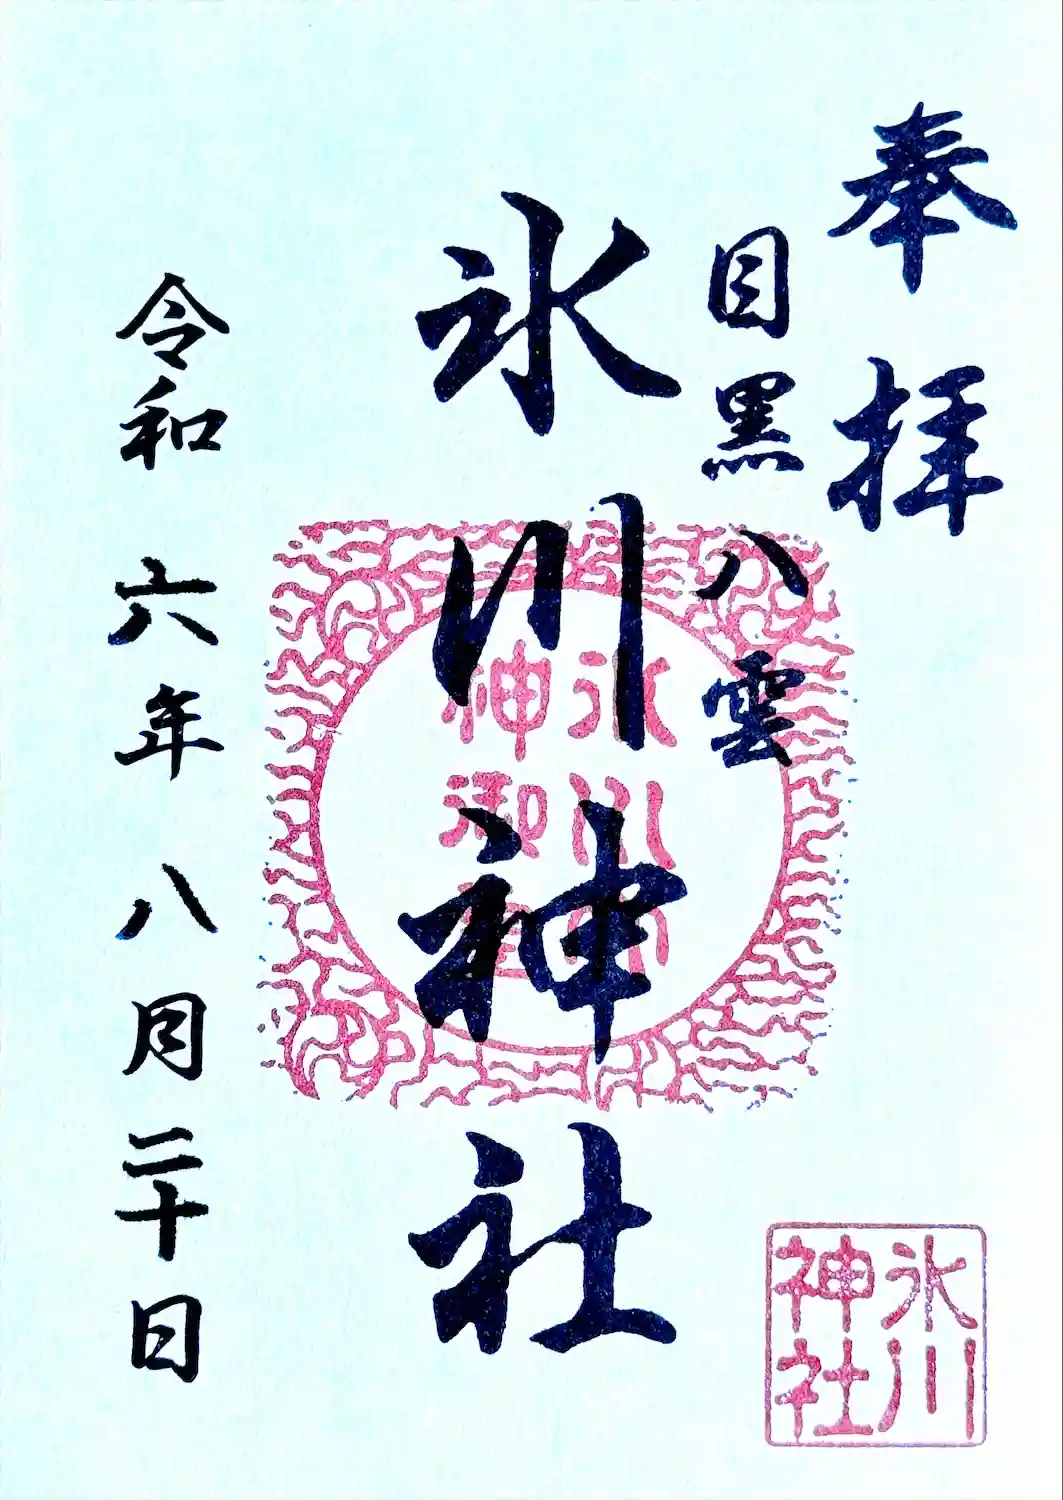 奉拝
目黒八雲
氷川神社
令和六年八月二十日
氷川
神社